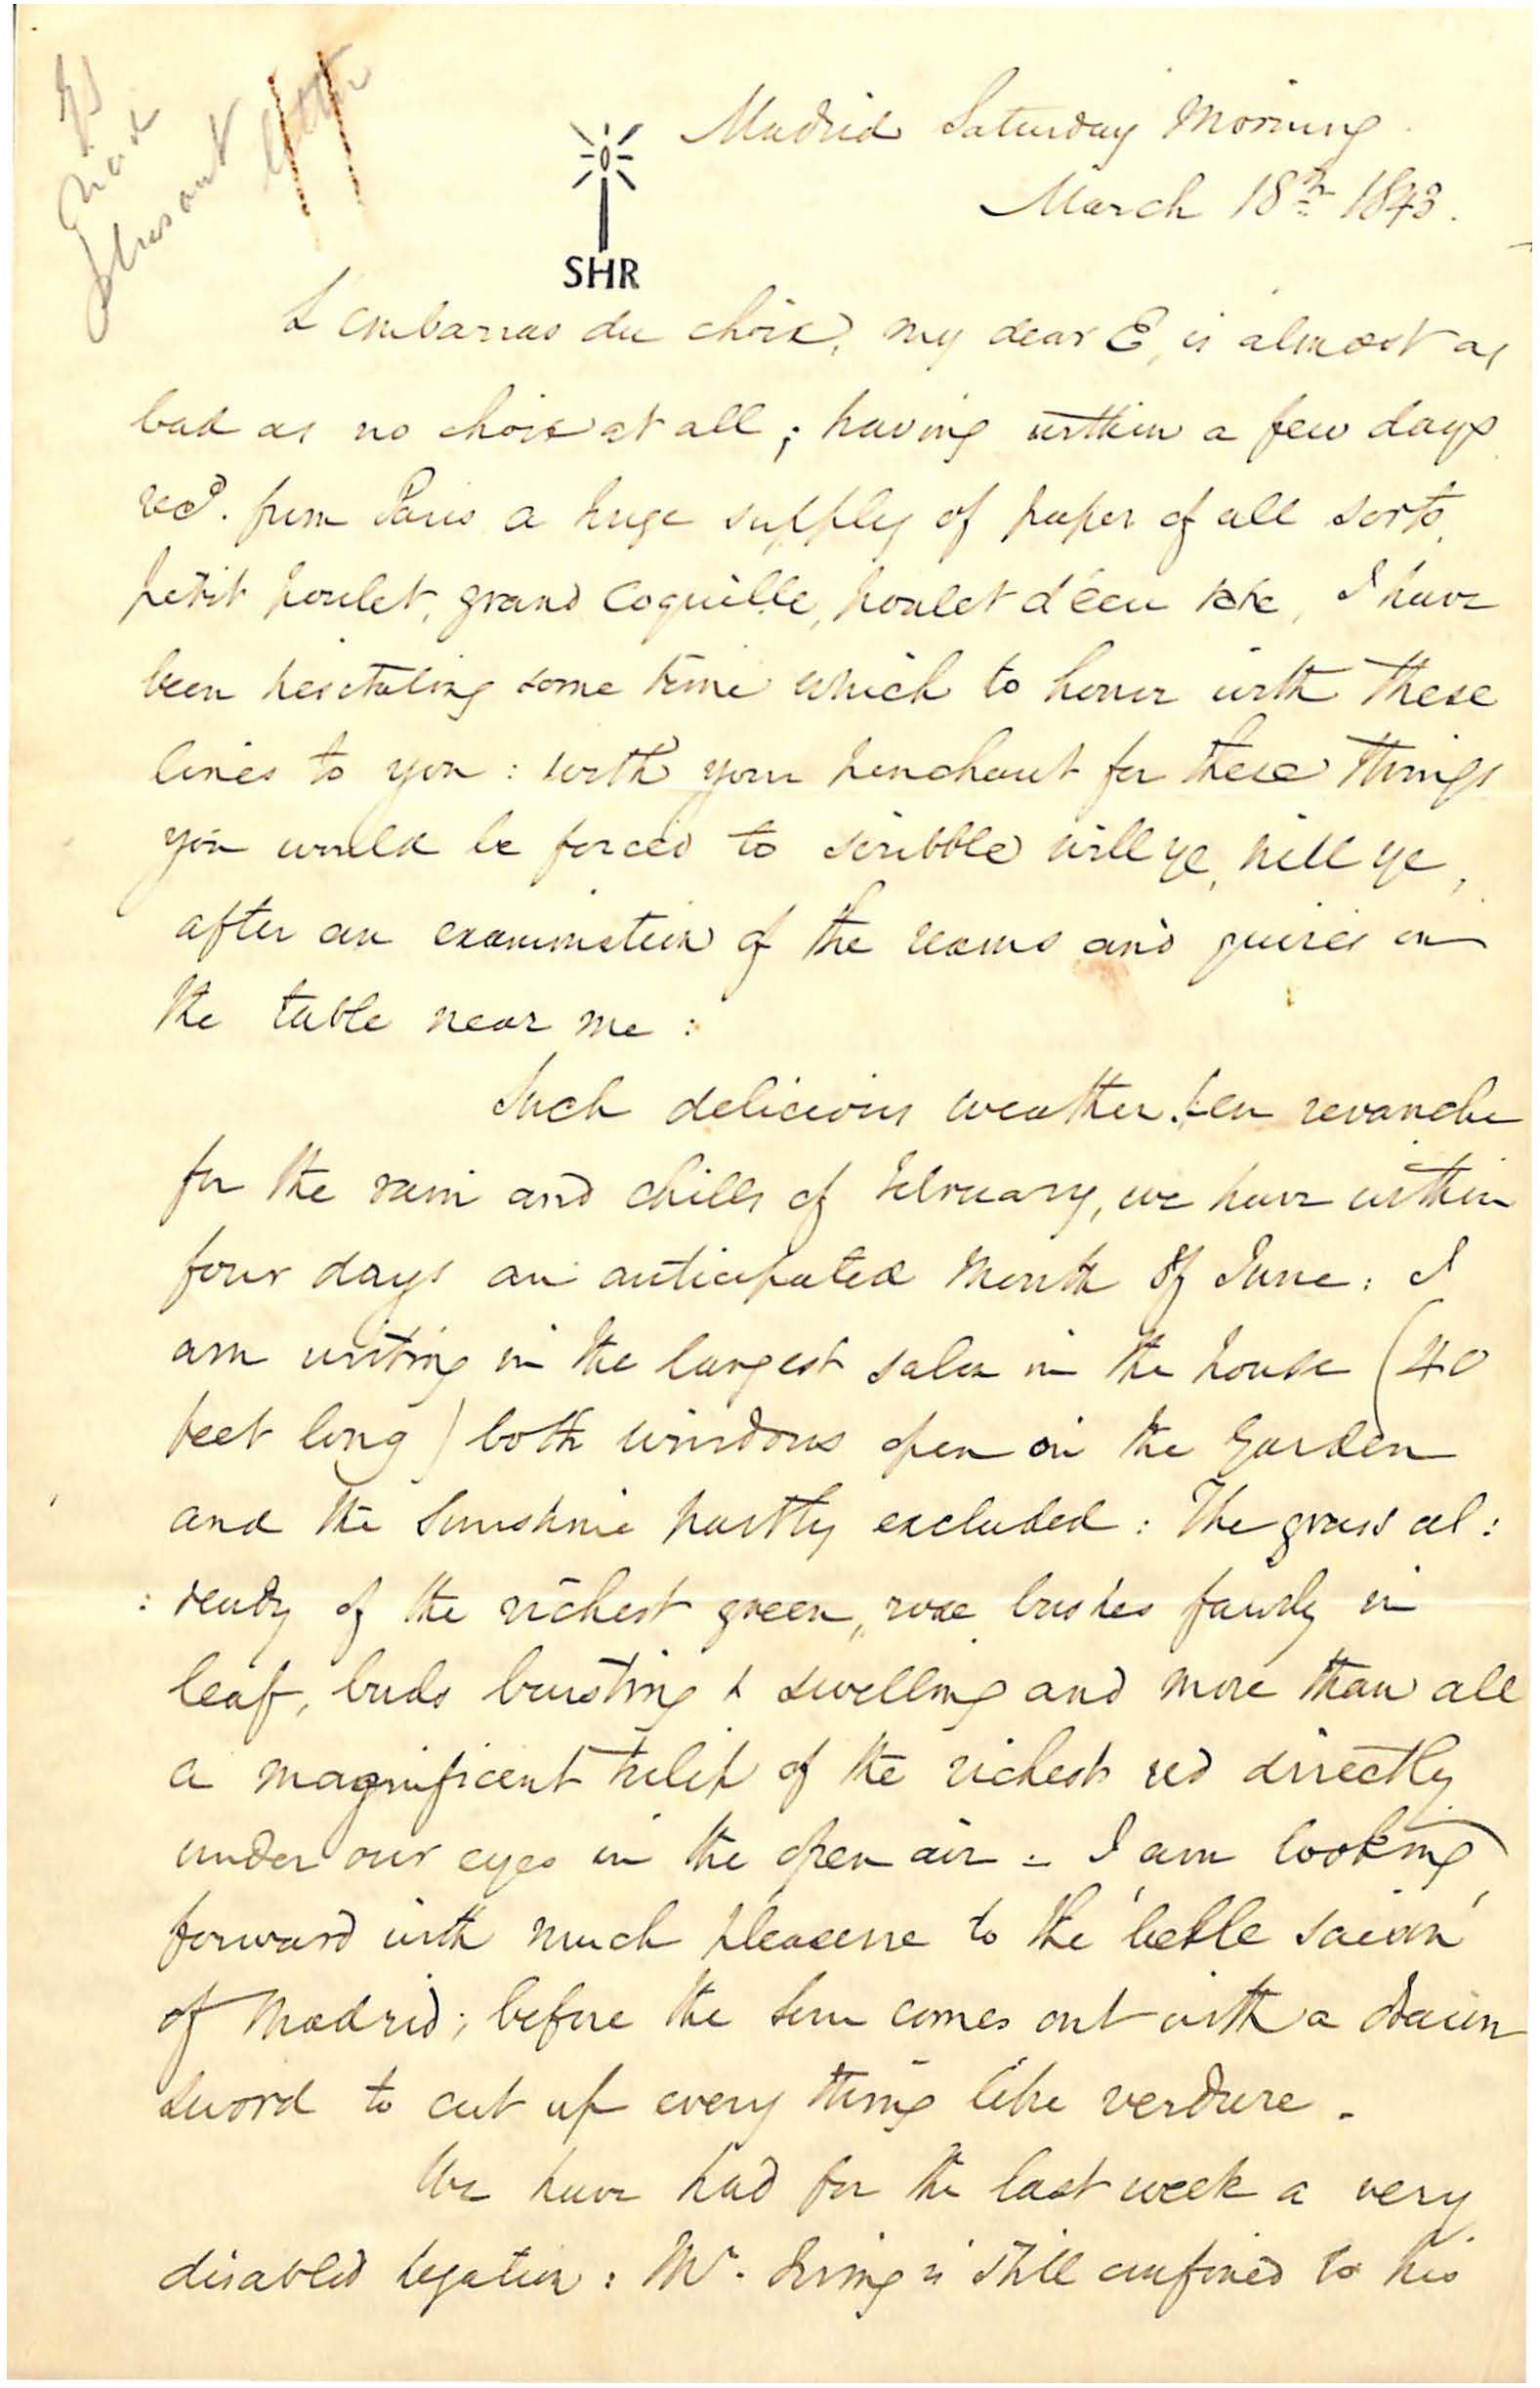 Madrid Saturday Morning
March 18th 1843.
SHR
L'embarras du choix, my dear E, is almost as
bad as no choix at all; having within a few days
recd. from Paris a huge supply of paper of all sorts,
petit poulet, grand Coquille, poulet d'écu &c &c, I have
been hesitating some time which to honor with these
lines to you: with your penchant for these things
you would be forced to scribble will ye, nill ye,
after an examination of the reams and quires on
the table near me:
Such delicious weather! en revanche
for the rain and chills of February, we have within
four days an anticipated month of June: I
am writing in the largest salon in the house (40
feet long) both windows open on the Garden
and the Sunshine partly excluded: The grass al:
:ready of the richest green, rose bushes fairly in
leaf, buds bursting & swelling and more than all
a magnificent tulip of the richest red directly
under our eyes in the open air - I am looking
forward with much pleasure to the 'belle saison'
of Madrid; before the Sun comes out with a drawn
sword to cut up every thing like verdure -
We have had for the last week a very
disabled legation: Mr. Irving is still confined to his